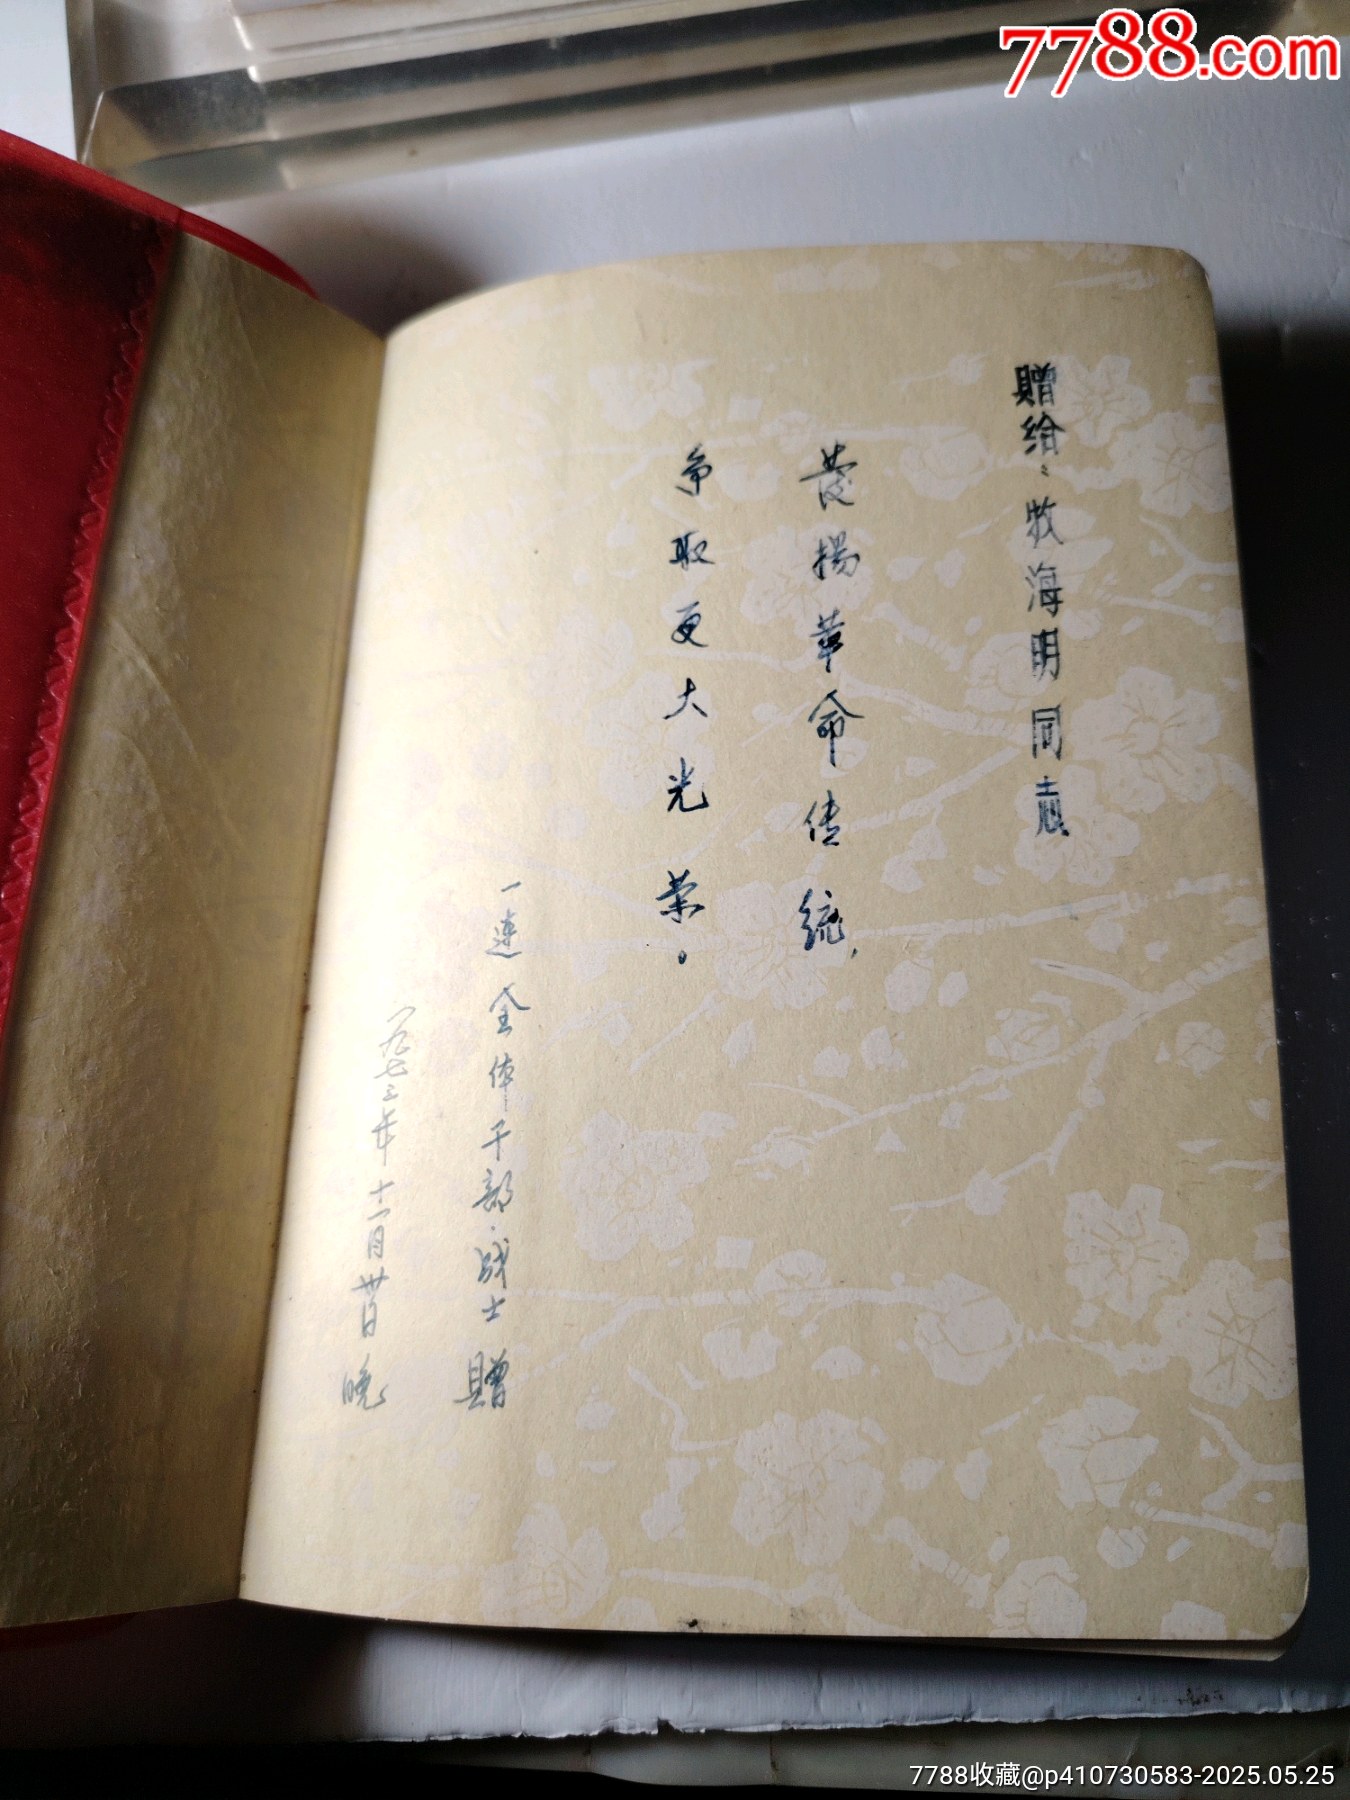 7788.com
贈给：牧海明同志
發揚革命传统，
争取更大光荣。
一連全体干部·战士贈
一九七三年十一月卅日晚
7788收藏@p410730583-2025.05.25